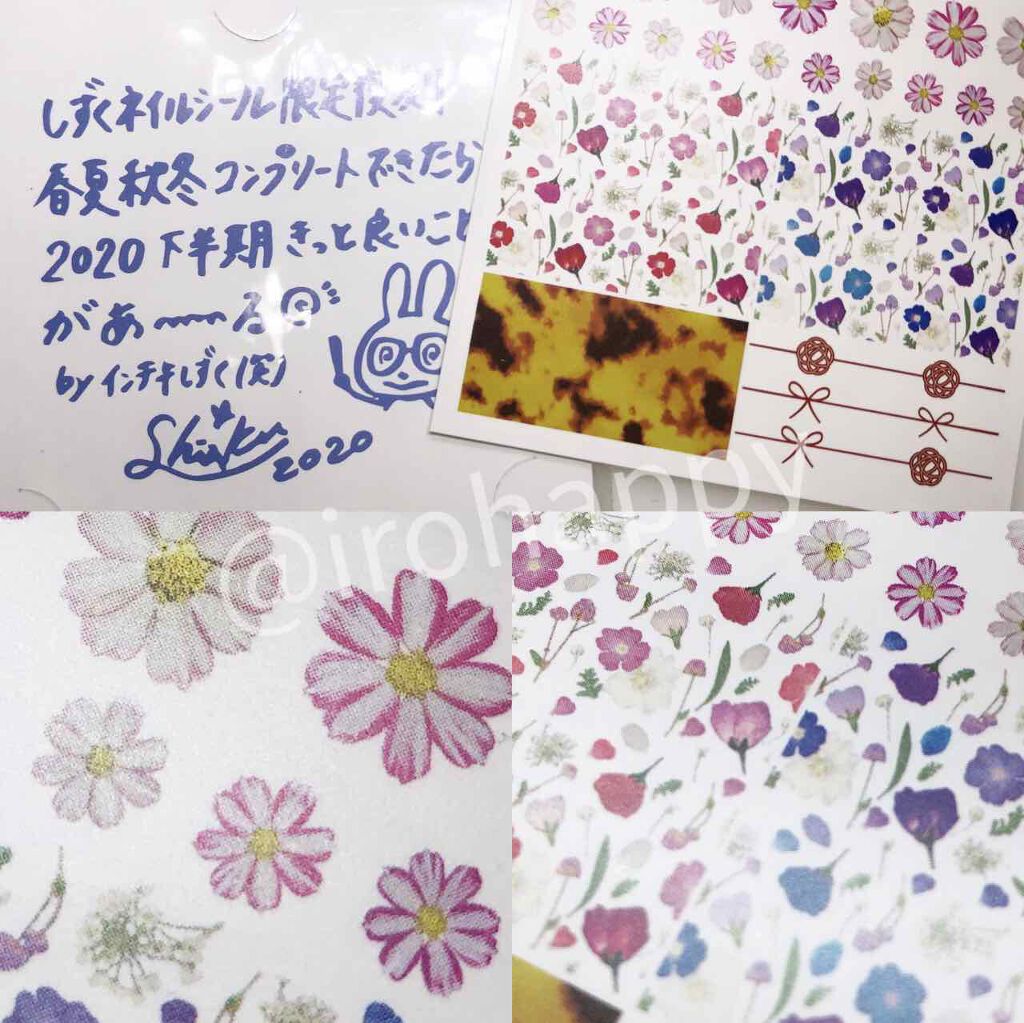 しずくネイルシール限定復刻!
春夏秋冬コンプリートできたら
2020下半期きっと良いこと
がぁ〜〜る
by インチキしずく(笑)
Shizuku 2020
@irohappy